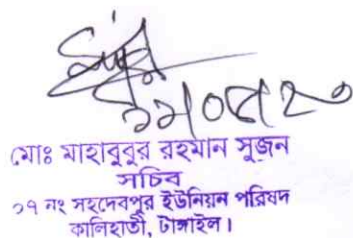 মোঃ মাহাবুবুর রহমান সুজন
সচিব
০৭ নং সহদেবপুর ইউনিয়ন পরিষদ
কালিহাতী, টাঙ্গাইল।